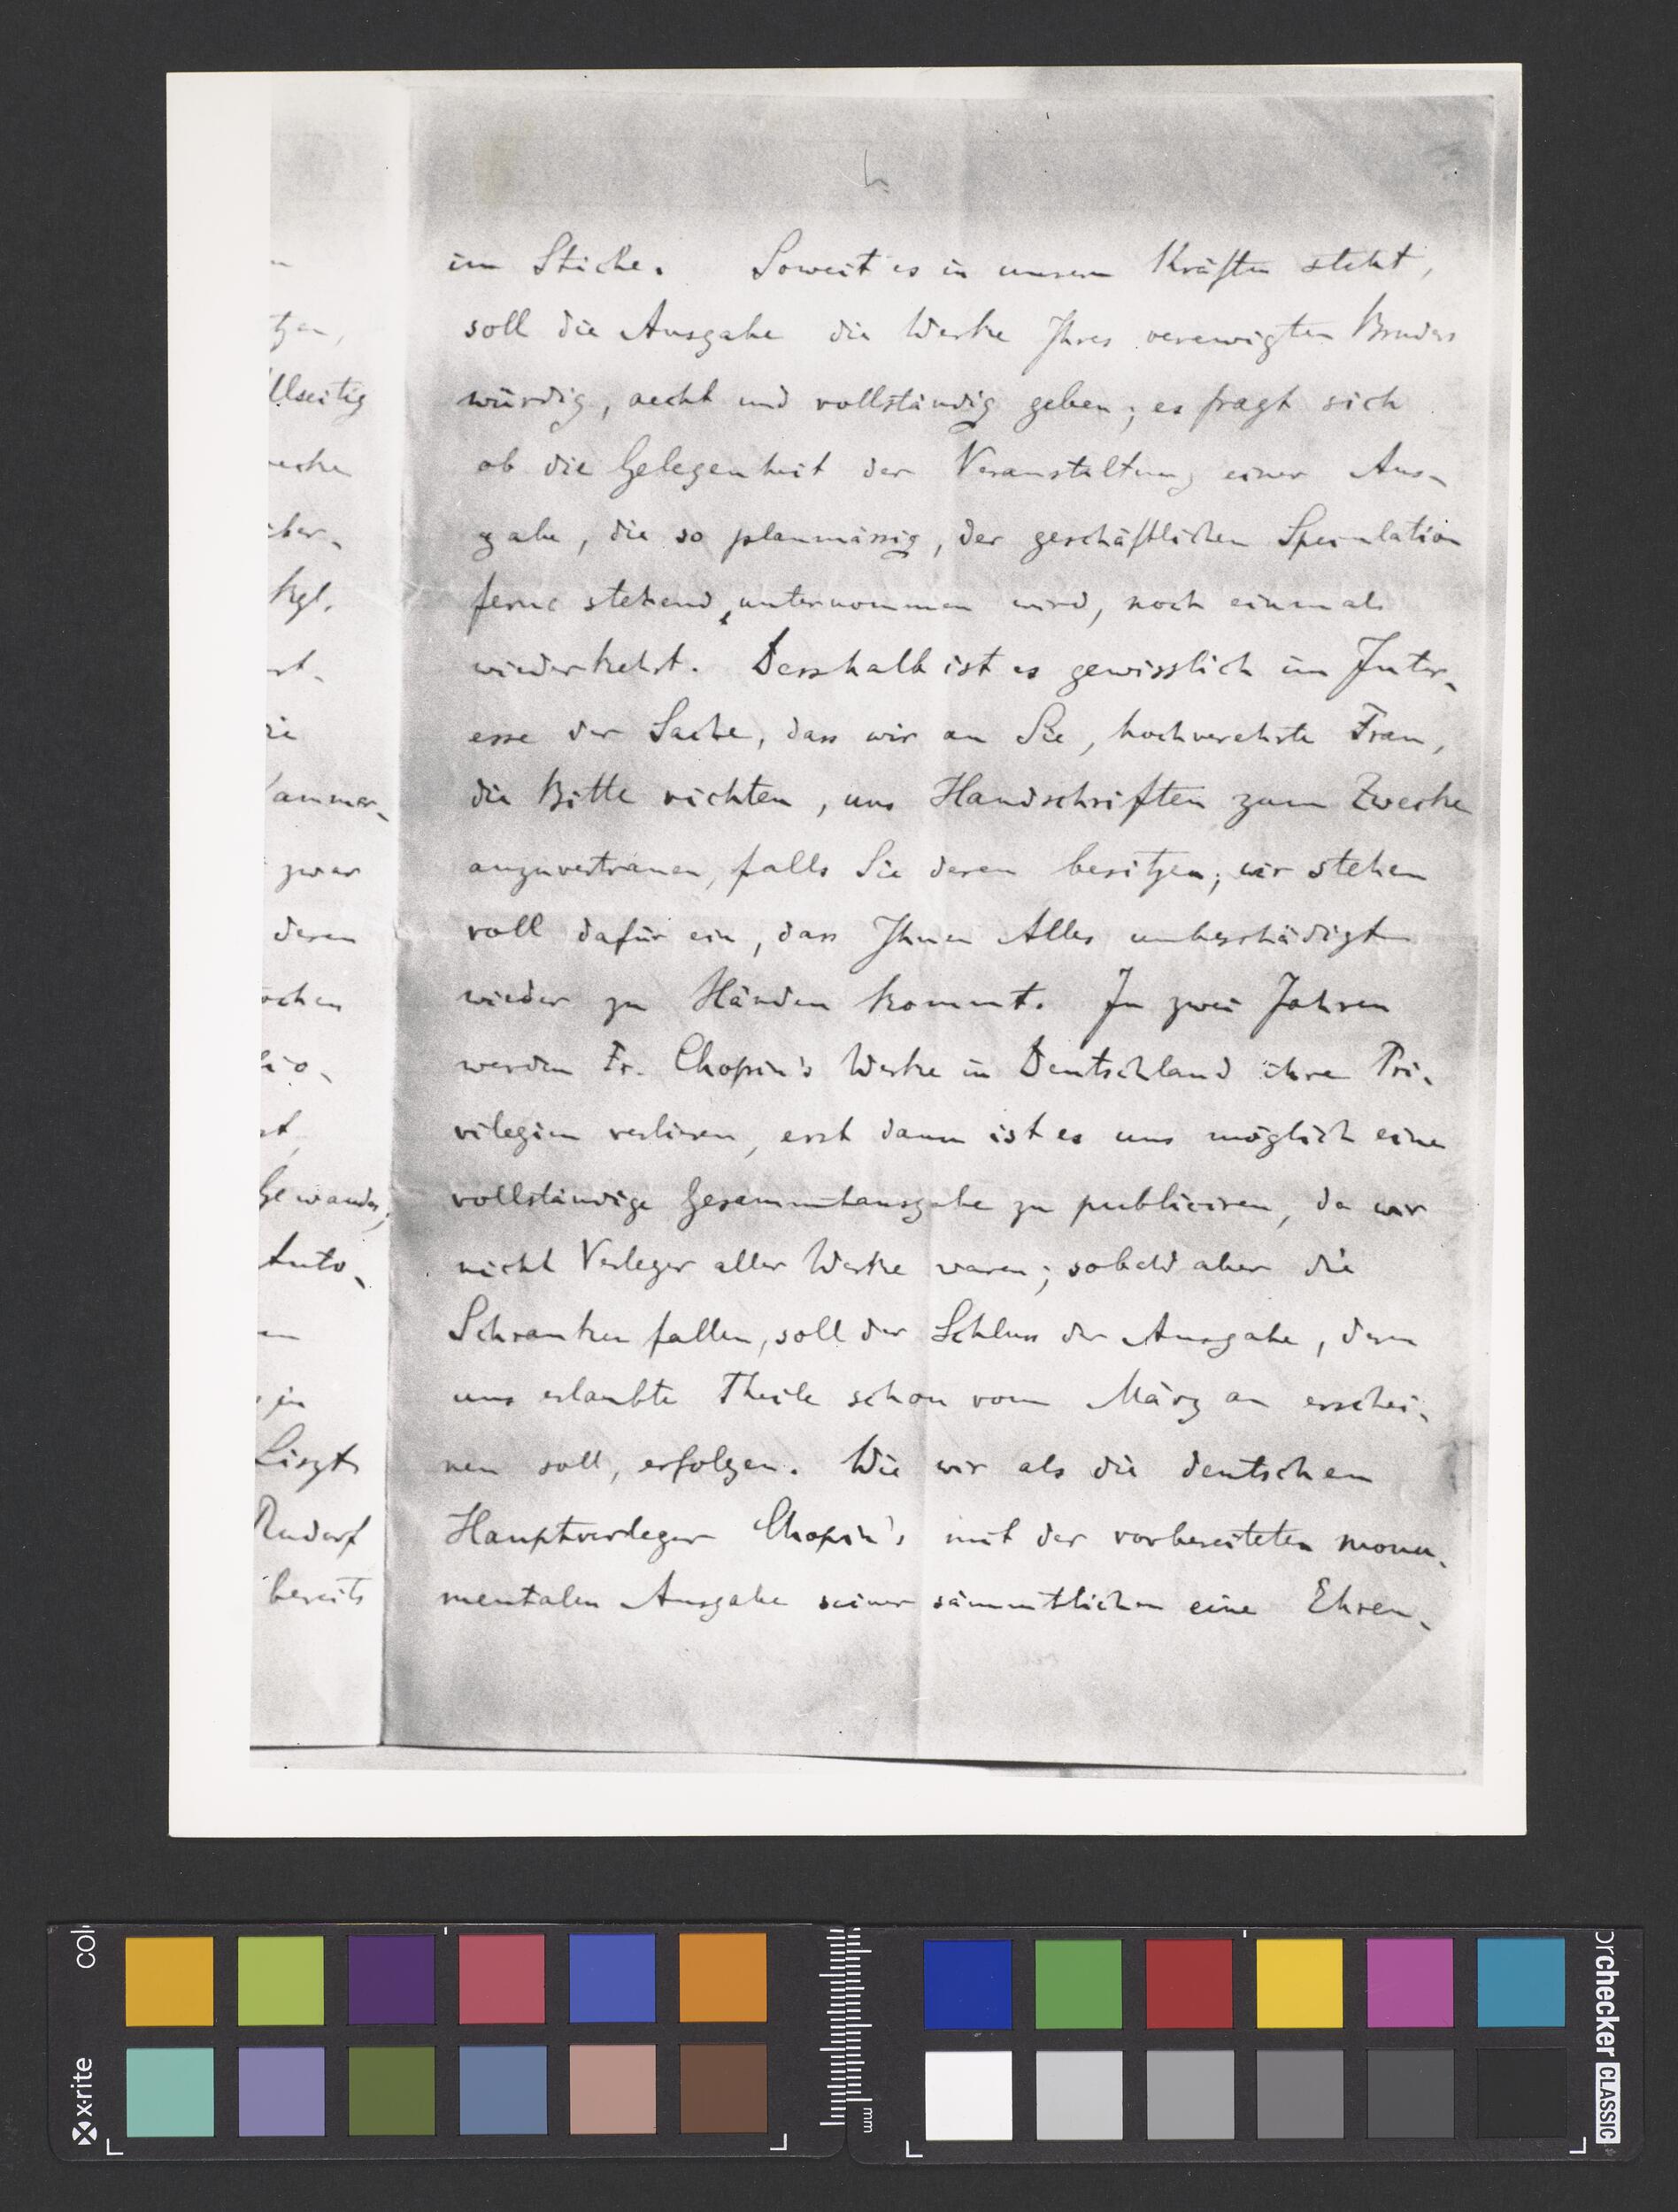 im Stiche. Soweit es in unsern Kräften steht,
soll die Ausgabe die Werke Ihres verewigten Bruders
würdig, aecht und vollständig geben; es fragt sich
ob die Gelegenheit der Veranstaltung einer Aus-
gabe, die so planmässig, der geschäftlichen Speculation
ferne stehend, unternommen wird, noch einmals
wiederkehrt. Desshalb ist es gewisslich im Inter-
esse der Sache, dass wir an Sie, hochverehrte Frau,
die Bitte richten, uns Handschriften zum Zwecke
anzuvertrauen, falls Sie deren besitzen; wir stehen
voll dafür ein, dass Ihnen Alles unbeschädigt
wieder zu Händen kommt. In zwei Jahren
werden Fr. Chopin's Werke in Deutschland ihre Pri-
vilegien verlieren, erst dann ist es uns möglich eine
vollständige Gesammtausgabe zu publiciren, da wir
nicht Verleger aller Werke waren; sobald aber die
Schranken fallen, soll der Schluss der Ausgabe, deren
uns erlaubte Theile schon vom März an erschei-
nen soll, erfolgen. Wie wir als die deutschen
Hauptverleger Chopin's mit der vorbereiteten monu-
mentalen Ausgabe seiner sämmtlichen eine Ehren-
tzen,
llseitig
ecke
ber-
Kgl.
rt-
ie
ammer-
zwar
deren
ochen
io-
st,
Gewandes,
Auto-
in
Liszt
Rudorf
bereits
x-rite
mm
checker CLASSIC